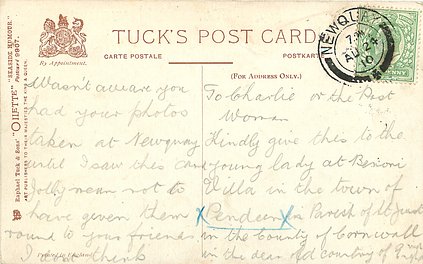 TUCK'S POST CARD
CARTE POSTALE
POSTKARTE
By Appointment.
(FOR ADDRESS ONLY.)
Raphael Tuck & Sons' "OILETTE" "SEASIDE HUMOUR."
Postcard 9907.
ART PUBLISHERS TO THEIR MAJESTIES THE KING & QUEEN.
NEWQUAY
AU 24
10
Wasn't aware you
had your photos
taken at Newquay
until I saw this an
Jolly mean not to
have given them
round to your friends,
I think
To Charlie or the Post
Woman
Kindly give this to the
young lady at
Villa in the town of
Pendeen in Parish of St Just
in the County of Cornwall
in the dear old country of